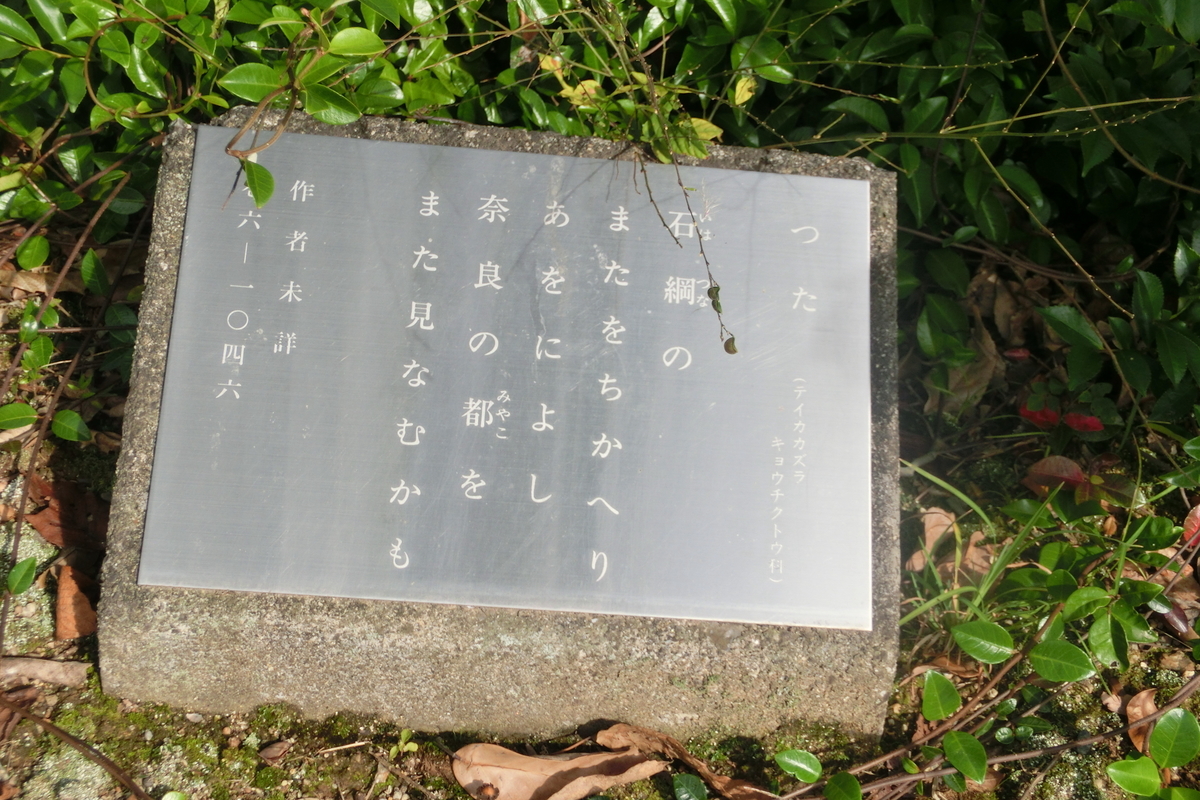 つた
（テイカカズラ
キョウチクトウ科）
石綱の
いは つな
またをちかへり
あをによし
奈良の都を
みやこ
また見なむかも
作者未詳
六―一〇四六